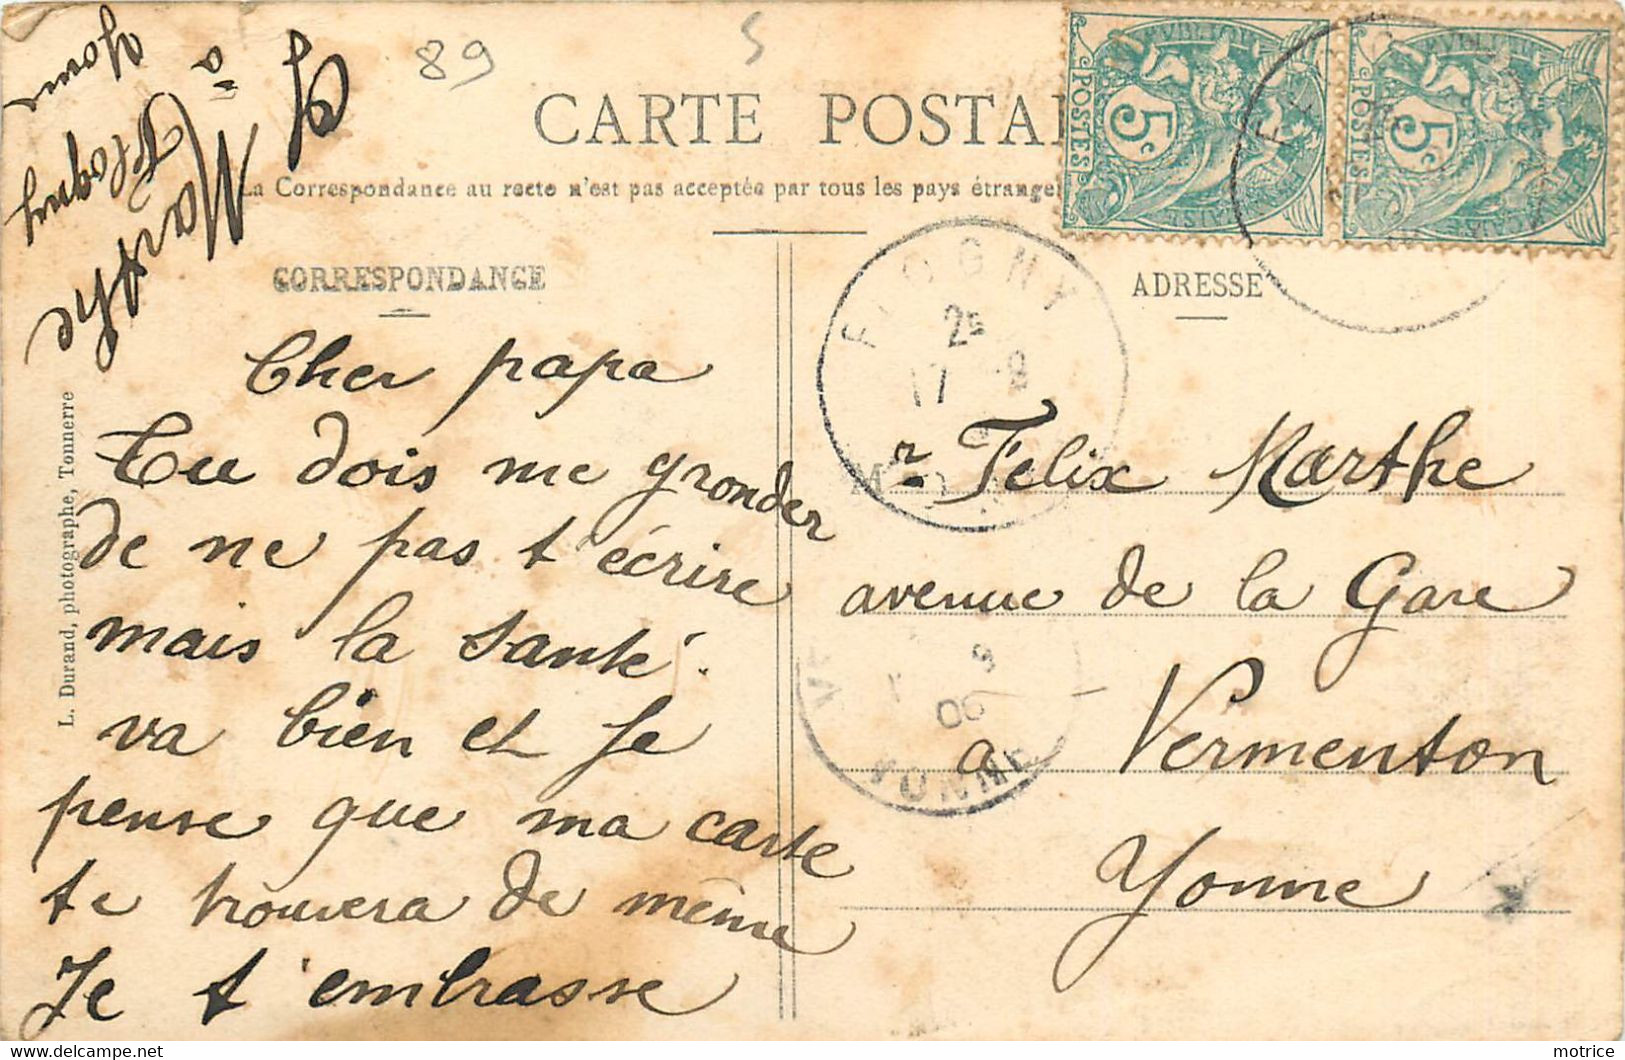 89
5
CARTE POSTAL
La Correspondance au recto n'est pas acceptée par tous les pays étrange
CORRESPONDANCE
ADRESSE
Marthe
à
Flogny
Yonne
POSTES
5c
POSTES
5c
FLOGNY
25
17 8
YONNE
06
L. Durand, photographe, Tonnerre
Cher papa
Tu dois me gronder
de ne pas t'écrire
mais la santé.
va bien et Je
pense que ma carte
te trouvera de même
Je t'embrasse
Mr Felix Marthe
avenue de la Gare
a Vermenton
Yonne
www.delcampe.net
motrice